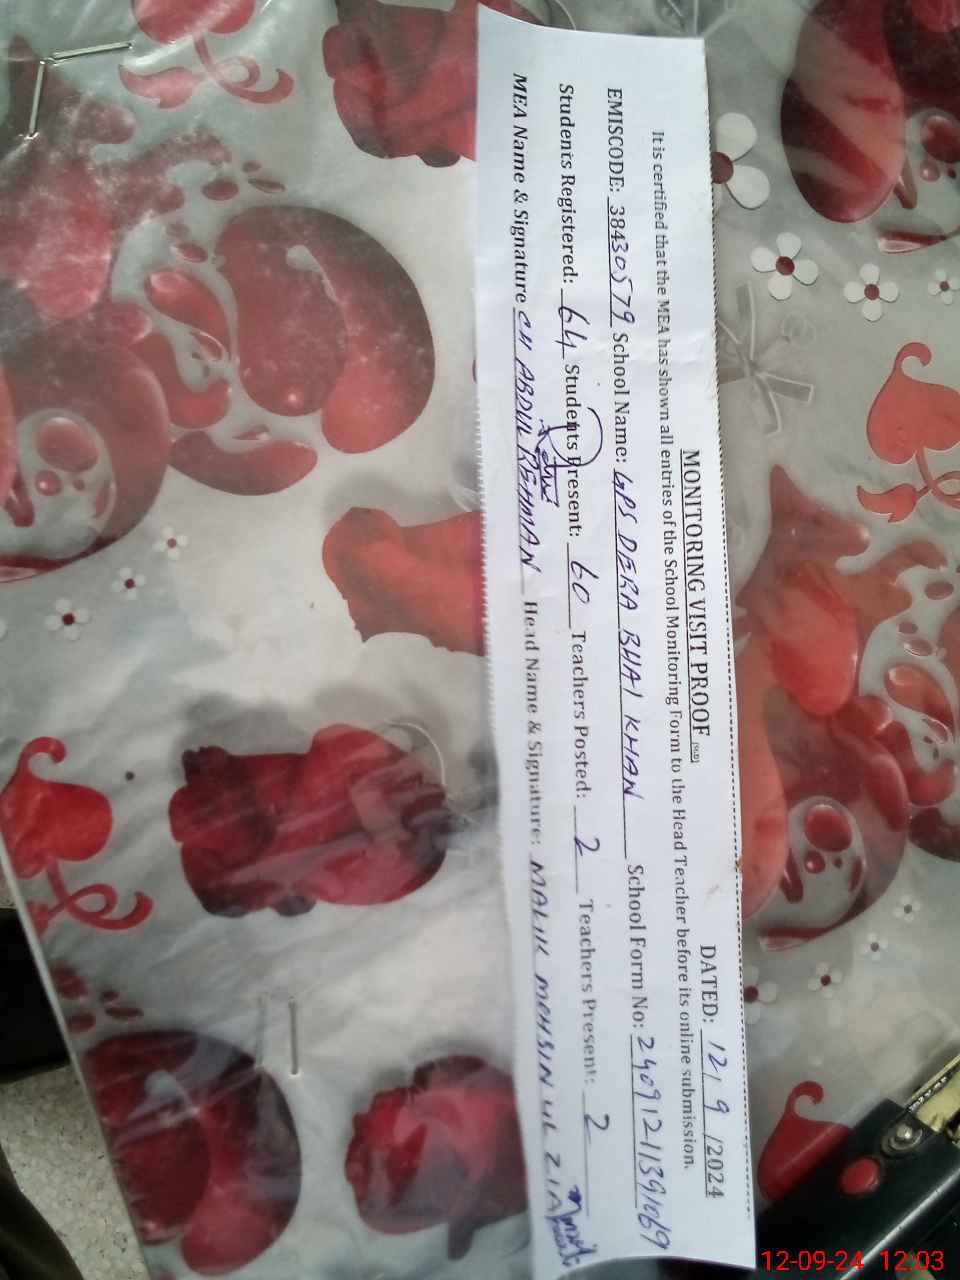 MONITORING VISIT PROOF [OLD] DATED: 12/9/2024
It is certified that the MEA has shown all entries of the School Monitoring Form to the Head Teacher before its online submission.
EMISCODE: 38430579 School Name: GPS DERA BHAI KHAN School Form No: 24091211391069
Students Registered: 64 Students Present: 60 Teachers Posted: 2 Teachers Present: 2
MEA Name & Signature CH ABDUL REHMAN Head Name & Signature: MALIK MOHSIN UL ZIA
12-09-24 12:03